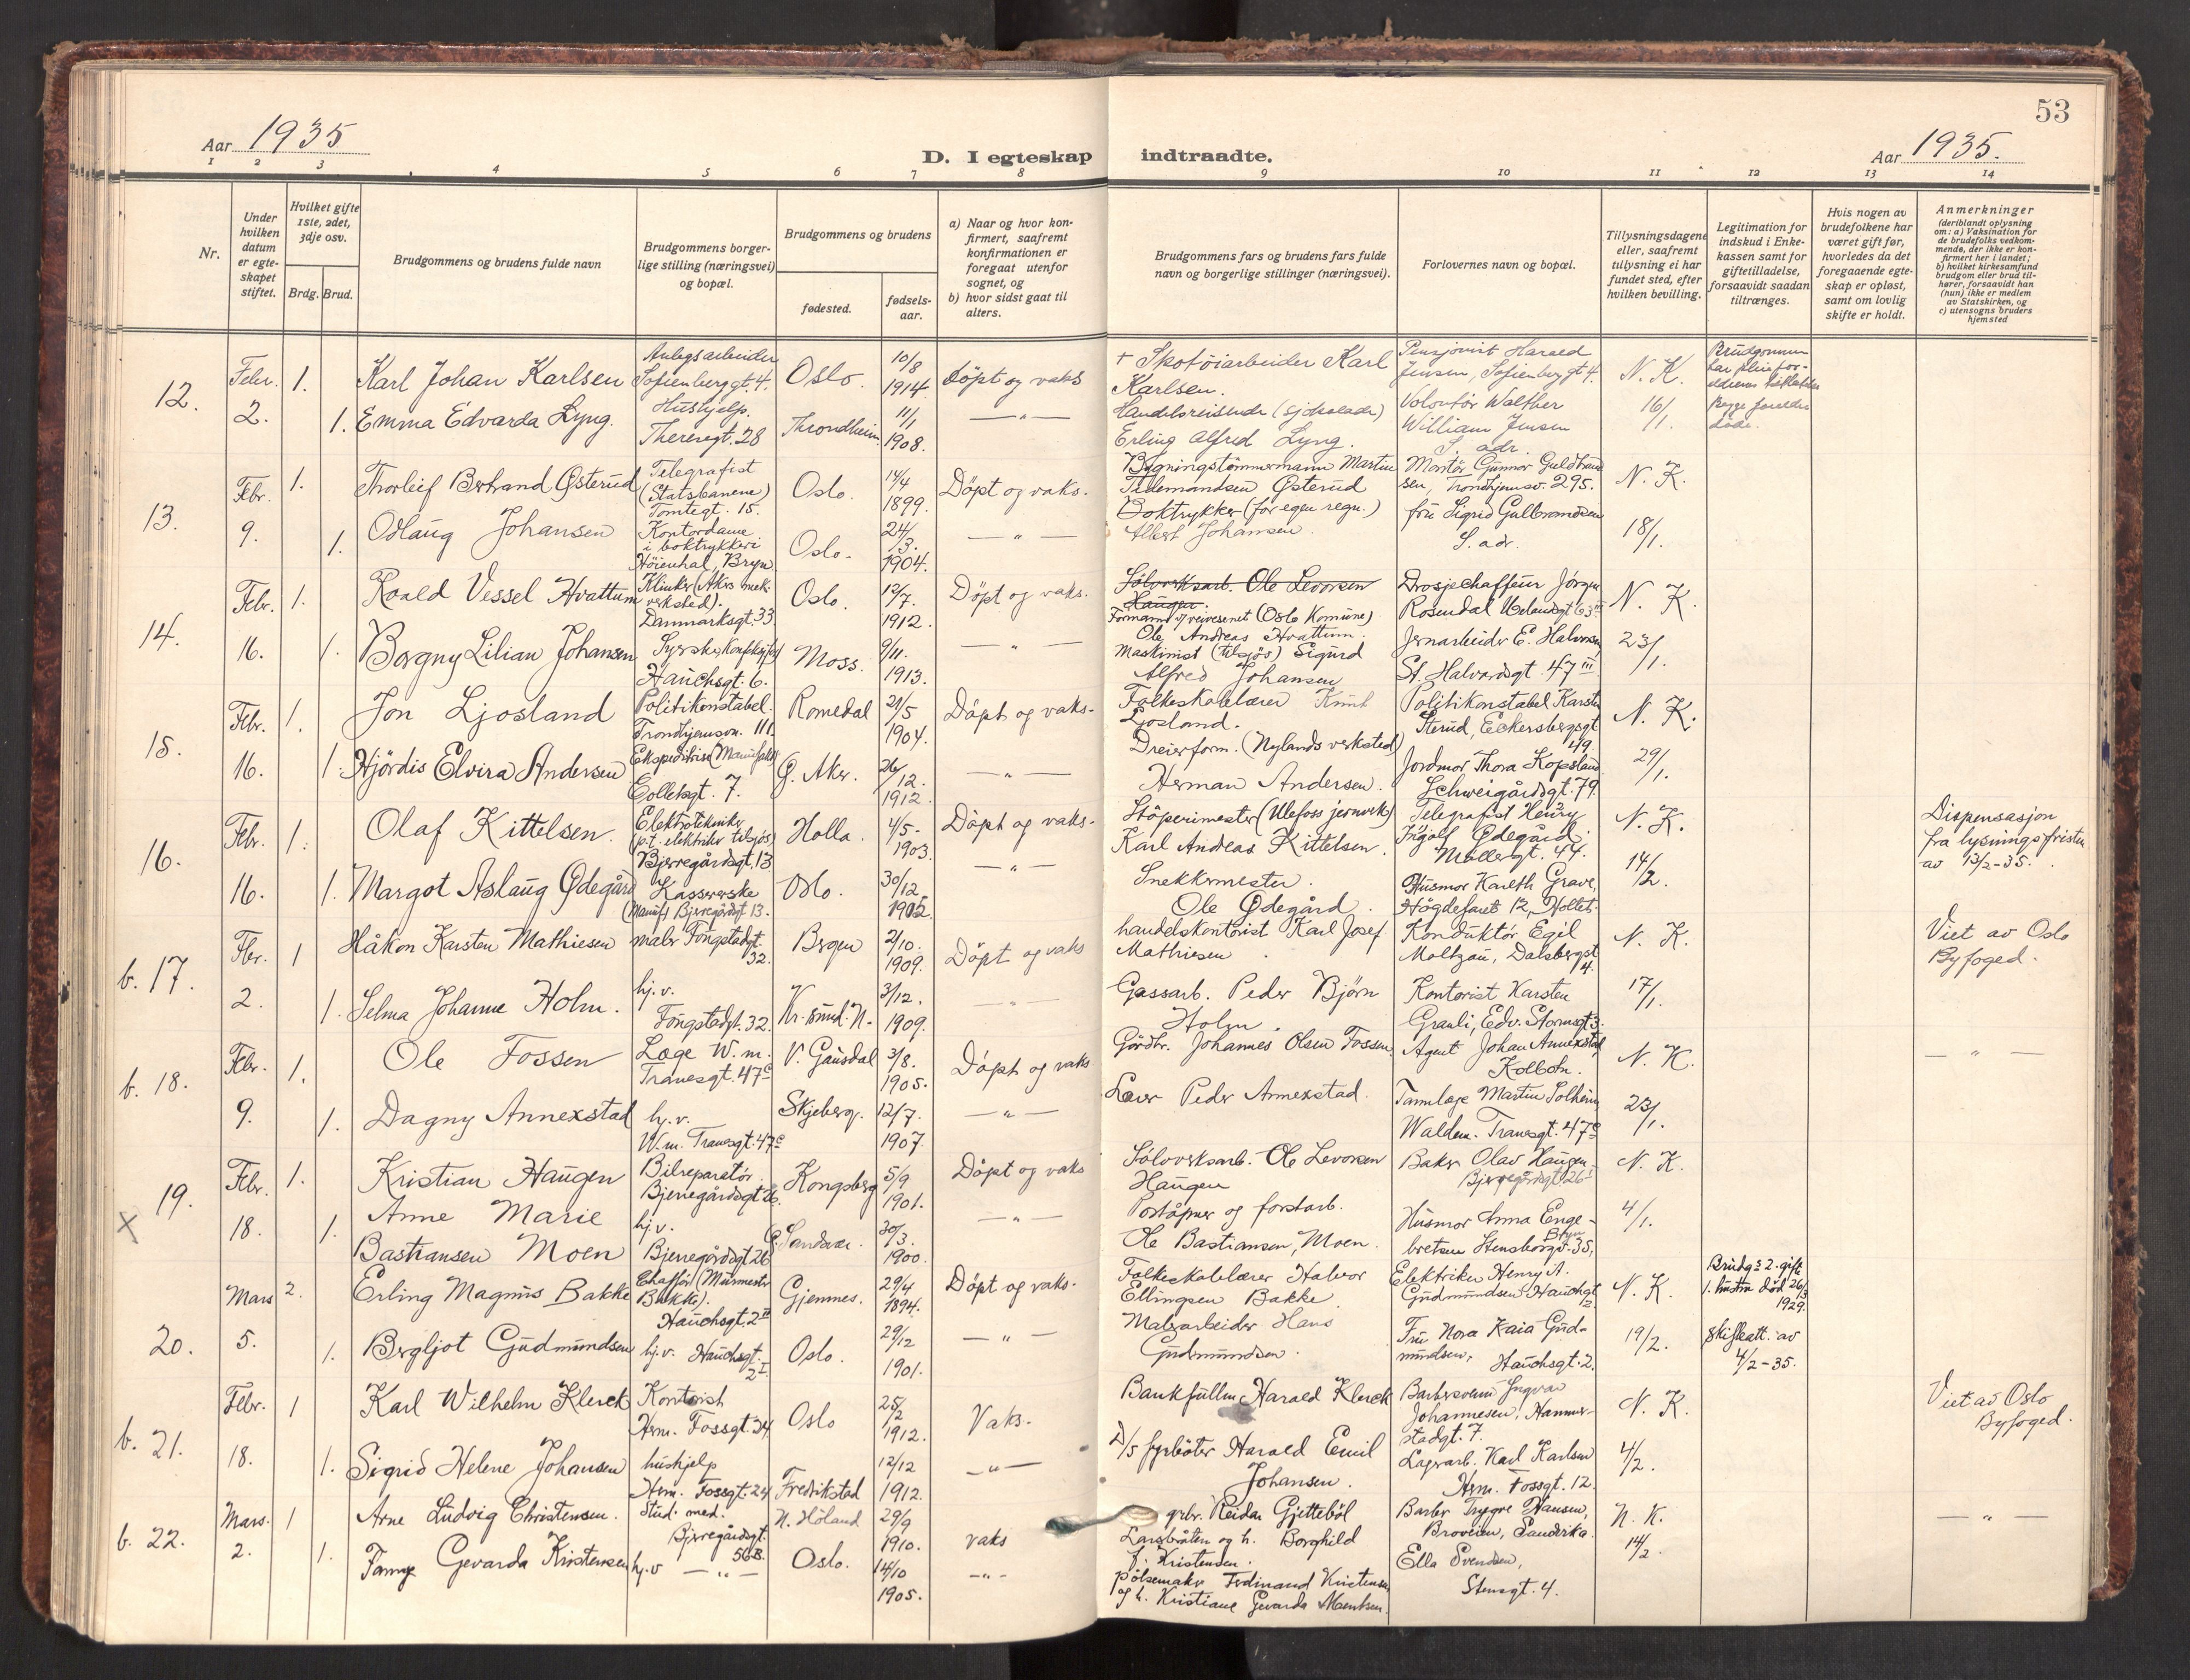 53
Aar 1935
D. I egteskap indtraadte.
Aar 1935.
1 2 3 4 5 6 7 8 9 10 11 12 13 14
Nr.
Under hvilken datum er egteskapet stiftet.
Hvilket gifte 1ste, 2det, 3dje osv.
Brdg. Brud.
Brudgommens og brudens fulde navn
Brudgommens borgerlige stilling (næringsvei) og bopæl.
Brudgommens og brudens
fødested.
fødselsaar.
a) Naar og hvor konfirmert, saafremt konfirmationen er foregaat utenfor sognet, og
b) hvor sidst gaat til alters.
Brudgommens fars og brudens fars fulde navn og borgerlige stillinger (næringsvei).
Forlovernes navn og bopæl.
Tillysningsdagene eller, saafremt tullysning ei har fundet sted, efter hvilken bevilling.
Legitimation for indskud i Enkekassen samt for giftetilladelse, forsaavidt saadan tiltrænges.
Hvis nogen av brudefolkene har været gift før, hvorledes da det foregaaende egteskap er opløst, samt om lovlig skifte er holdt.
Anmerkninger
(deriblandt oplysning om: a) Vaksination for de brudefolks vedkommende, der ikke er konfirmert her i landet;
b) hvilket kirkesamfund brudgom eller brud tilhører, forsaavidt han (hun) ikke er medlem av Statskirken, og
c) utensogns bruders hjemsted
12.
Febr. 2.
1. Karl Johan Karlsen
Anlegsarbeider Sofienberggt. 4.
Oslo.
10/8 1914.
Döpt og vaks
+ Skotöiarbeider Karl Karlsen.
Harald Jensen, Sofienberggt 4.
N. K.
Brudgommen har
1. Emma Edvarda Lyng.
Hushjelp. Theresegt. 28
Throndheim.
11/1 1908.
— " —
Handelsreisende (sjokolade) Erling Alfred Lyng.
Volontör Walther William Jensen S. adr.
16/1.
Begge foreldre döde.
13.
Febr. 9.
1. Thorleif Bertrand Østerud
Telegrafist (Statsbanene) Tomtegt. 15.
Oslo.
14/4 1899.
Döpt og vaks.
Bygningstömmermann Martin Tidemandsen Østerud
Montör Gunnar Guldbrandsen, Trondhjemsv. 295.
N. K.
1. Odlaug Johansen
Kontordame i boktrykkeri Höienhal, Bryn
Oslo.
24/3. 1904.
— " —
Boktrykker (for egen regn.) Albert Johansen.
fru Sigrid Gulbrandsen S. adr.
18/1.
14.
Febr. 16.
1. Roald Vessel Hvattum
Klinker (Akers mek. verksted). Danmarksgt. 33
Oslo.
12/7. 1912.
Döpt og vaks.
Sölvverksarb. Ole Levorsen Haugen.
Formann i veivesenet (Oslo Komune) Ole Andreas Hvattum.
Drosjechaffeur Jörgen Rosendal Uelandsgt 63 III
N. K.
1. Borgny Lilian Johansen
Syerske, Hauchsgt. 6.
Moss.
9/11. 1913.
— " —
Maskinist (tilsjös) Sigurd Alfred Johansen
Jernarbeider E. Halvorsen St. Halvardsgt. 47 III
23/1.
15.
Febr. 16.
1. Jon Ljosland
Politikonstabel. Trondhjemsvn. 111.
Romedal
21/5 1904.
Döpt og vaks.
Folkeskolelærer Knut Ljosland.
Politikonstabel Karsten Sterud, Eckersbergsgt 49.
N. K.
1. Hjördis Elvira Andersen
Ekspeditrise (Manufakt.) Colletsgt. 7.
Ø. Aker.
26/12. 1912.
— " —
Dreierform. (Nylands verksted) Herman Andersen.
Jordmor Thora Kopsland Schweigårdsgt. 79.
29/1.
16.
Febr. 16.
1. Olaf Kittelsen.
Elektrotekniker (p.t. elektriker tilsjös) Bjerregårdsgt. 13
Holla.
4/5 - 1903.
Döpt og vaks.
Stöperimester (Ulefoss jernverk) Karl Andreas Kittelsen.
Telegrafist Henry Ingolf Ødegård. Möllergt. 44.
N. K.
Dispensasjon fra lysningsfristen av 13/2-35.
1. Margot Aslaug Ødegård
Kassererske (Manuf) Bjerregårdsgt 13.
Oslo.
30/12. 1905.
— " —
Snekkermester. Ole Ødegård.
Husmor Kareth Grave, Högdefaret 12, Holtet.
14/2.
b. 17.
Febr. 2.
1 Håkon Karsten Mathiesen
maler Fougstadgt. 32.
Bergen
2/10. 1909.
Döpt og vaks
handelskontorist Karl Josef Mathiesen.
Konduktör Egil Moltzau, Dalsbergst. 4.
N. K.
Viet av Oslo Byfoged.
1. Selma Johanne Holm.
hj. v. Fougstadgt. 32.
Kr. sund. N.
3/12. 1909.
— " —
Gassarb. Peder Björn Holm.
Kontorist Karsten Grauli, Edv. Stormsgt 3.
17/1.
b. 18.
Febr. 9.
1. Ole Fossen
Læge W. m. Tranesgt. 47c
V. Gausdal
3/8. 1905.
Döpt og vaks.
Gårdbr. Johannes Olsen Fossen.
Agent Johan Annexstad, Kolbotn.
N. K.
— " —
1. Dagny Annexstad
hj. v. W.m. Tranesgt. 47c
Skjeberg.
12/7. 1907.
— " —
Peder Annexstad.
Tannlæge Martin Solheim, Waldm. Tranesgt. 47c
23/1.
19.
X
Febr. 18.
1. Kristian Haugen
Bilreparatör Bjerregårdsgt 26.
Kongsberg
5/9 1901.
Döpt og vaks
Sölvverksarb. Ole Levorsen Haugen
Baker Olav Haugen Bjerregårdsgt 26
N. K.
1. Anne Marie Bastiansen Moen
hj. v. Bjerregårdsgt 26
Ø. Sandsvær.
30/3. 1900.
— " —
Poståpner og forstarb. Ole Bastiansen, Moen.
Husmor Anna Engebretsen Stensborgv. 35, Bryn
4/1.
20.
Mars 5.
2. Erling Magnus Bakke
Chafför (Murmester Bakke). Hauchsgt. 2 II
Gjemnes.
29/4 1894.
Döpt og vaks.
Folkeskolelærer Halvor Ellingsen Bakke.
Elektriker Henry A. Gudmundsen, Hauchsgt 2.
N. K.
Brudg: 2. gift 1. hustru död 26/3 1929.
1. Bergljot Gudmundsen
hj. v. Hauchsgt. 2 I
Oslo.
29/12 1901.
— " —
Malerarbeider Hans Gudmundsen.
Fru Nora Kaia Gudmundsen, Hauchsgt. 2.
19/2.
skifteatt. av 4/2-35.
b. 21.
Febr. 18.
1 Karl Wilhelm Klerck
Kontorist Herm. Fossgt. 24
Oslo
25/2 1912.
Vaks.
Bankfullm. Harald Klerck
Barbersvenn Ingvar Johannesen, Hammerstadgt. 7.
N. K.
Viet av Oslo Byfoged.
1. Sigrid Helene Johansen
hushjelp Herm. Fossgt. 24
Fredrikstad
12/12 1912.
— " —
D/S fyrböter Harald Emil Johansen.
Lagerarb. Karl Karlsen Herm. Fossgt. 12.
4/2.
b. 22.
Mars. 2.
1 Arne Ludvig Christensen.
Stud. med. Bjerregårdsgt. 56B.
N. Höland
29/9 1910.
vaks
grbr. Reidar Gjetteböl Larsbråten og h. Borghild f. Kristensen.
Barber Trygve Hansen, Broveien, Sandvika.
N. K.
— " —
1. Fanny Gevarda Kristensen
hj. v — " —
Oslo.
14/10 1905.
— " —
Pölsemaker Ferdinand Kristensen og h. Kristiane Gevarda
Ella Svendsen, Stensgt. 4.
14/2.